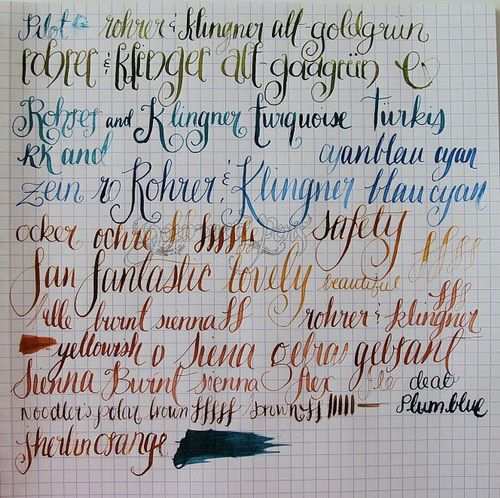 Pilot rohrer & Klingner alt goldgrün
rohrer & klinger alt goadgrün
Rohrer and Klingner turquoise türkis
RK and cyanblau cyan
zein Rohrer & Klingner blau cyan
ocker ochre ffffff safety ffff
fan fantastic lovely beautiful fff
burnt sienna ff rohrer & klingner
yellowish o Siena gebrant
Sienna Burnt sienna flex
noodlers polar brown fffff brown ff Plumblue
sherlin orange